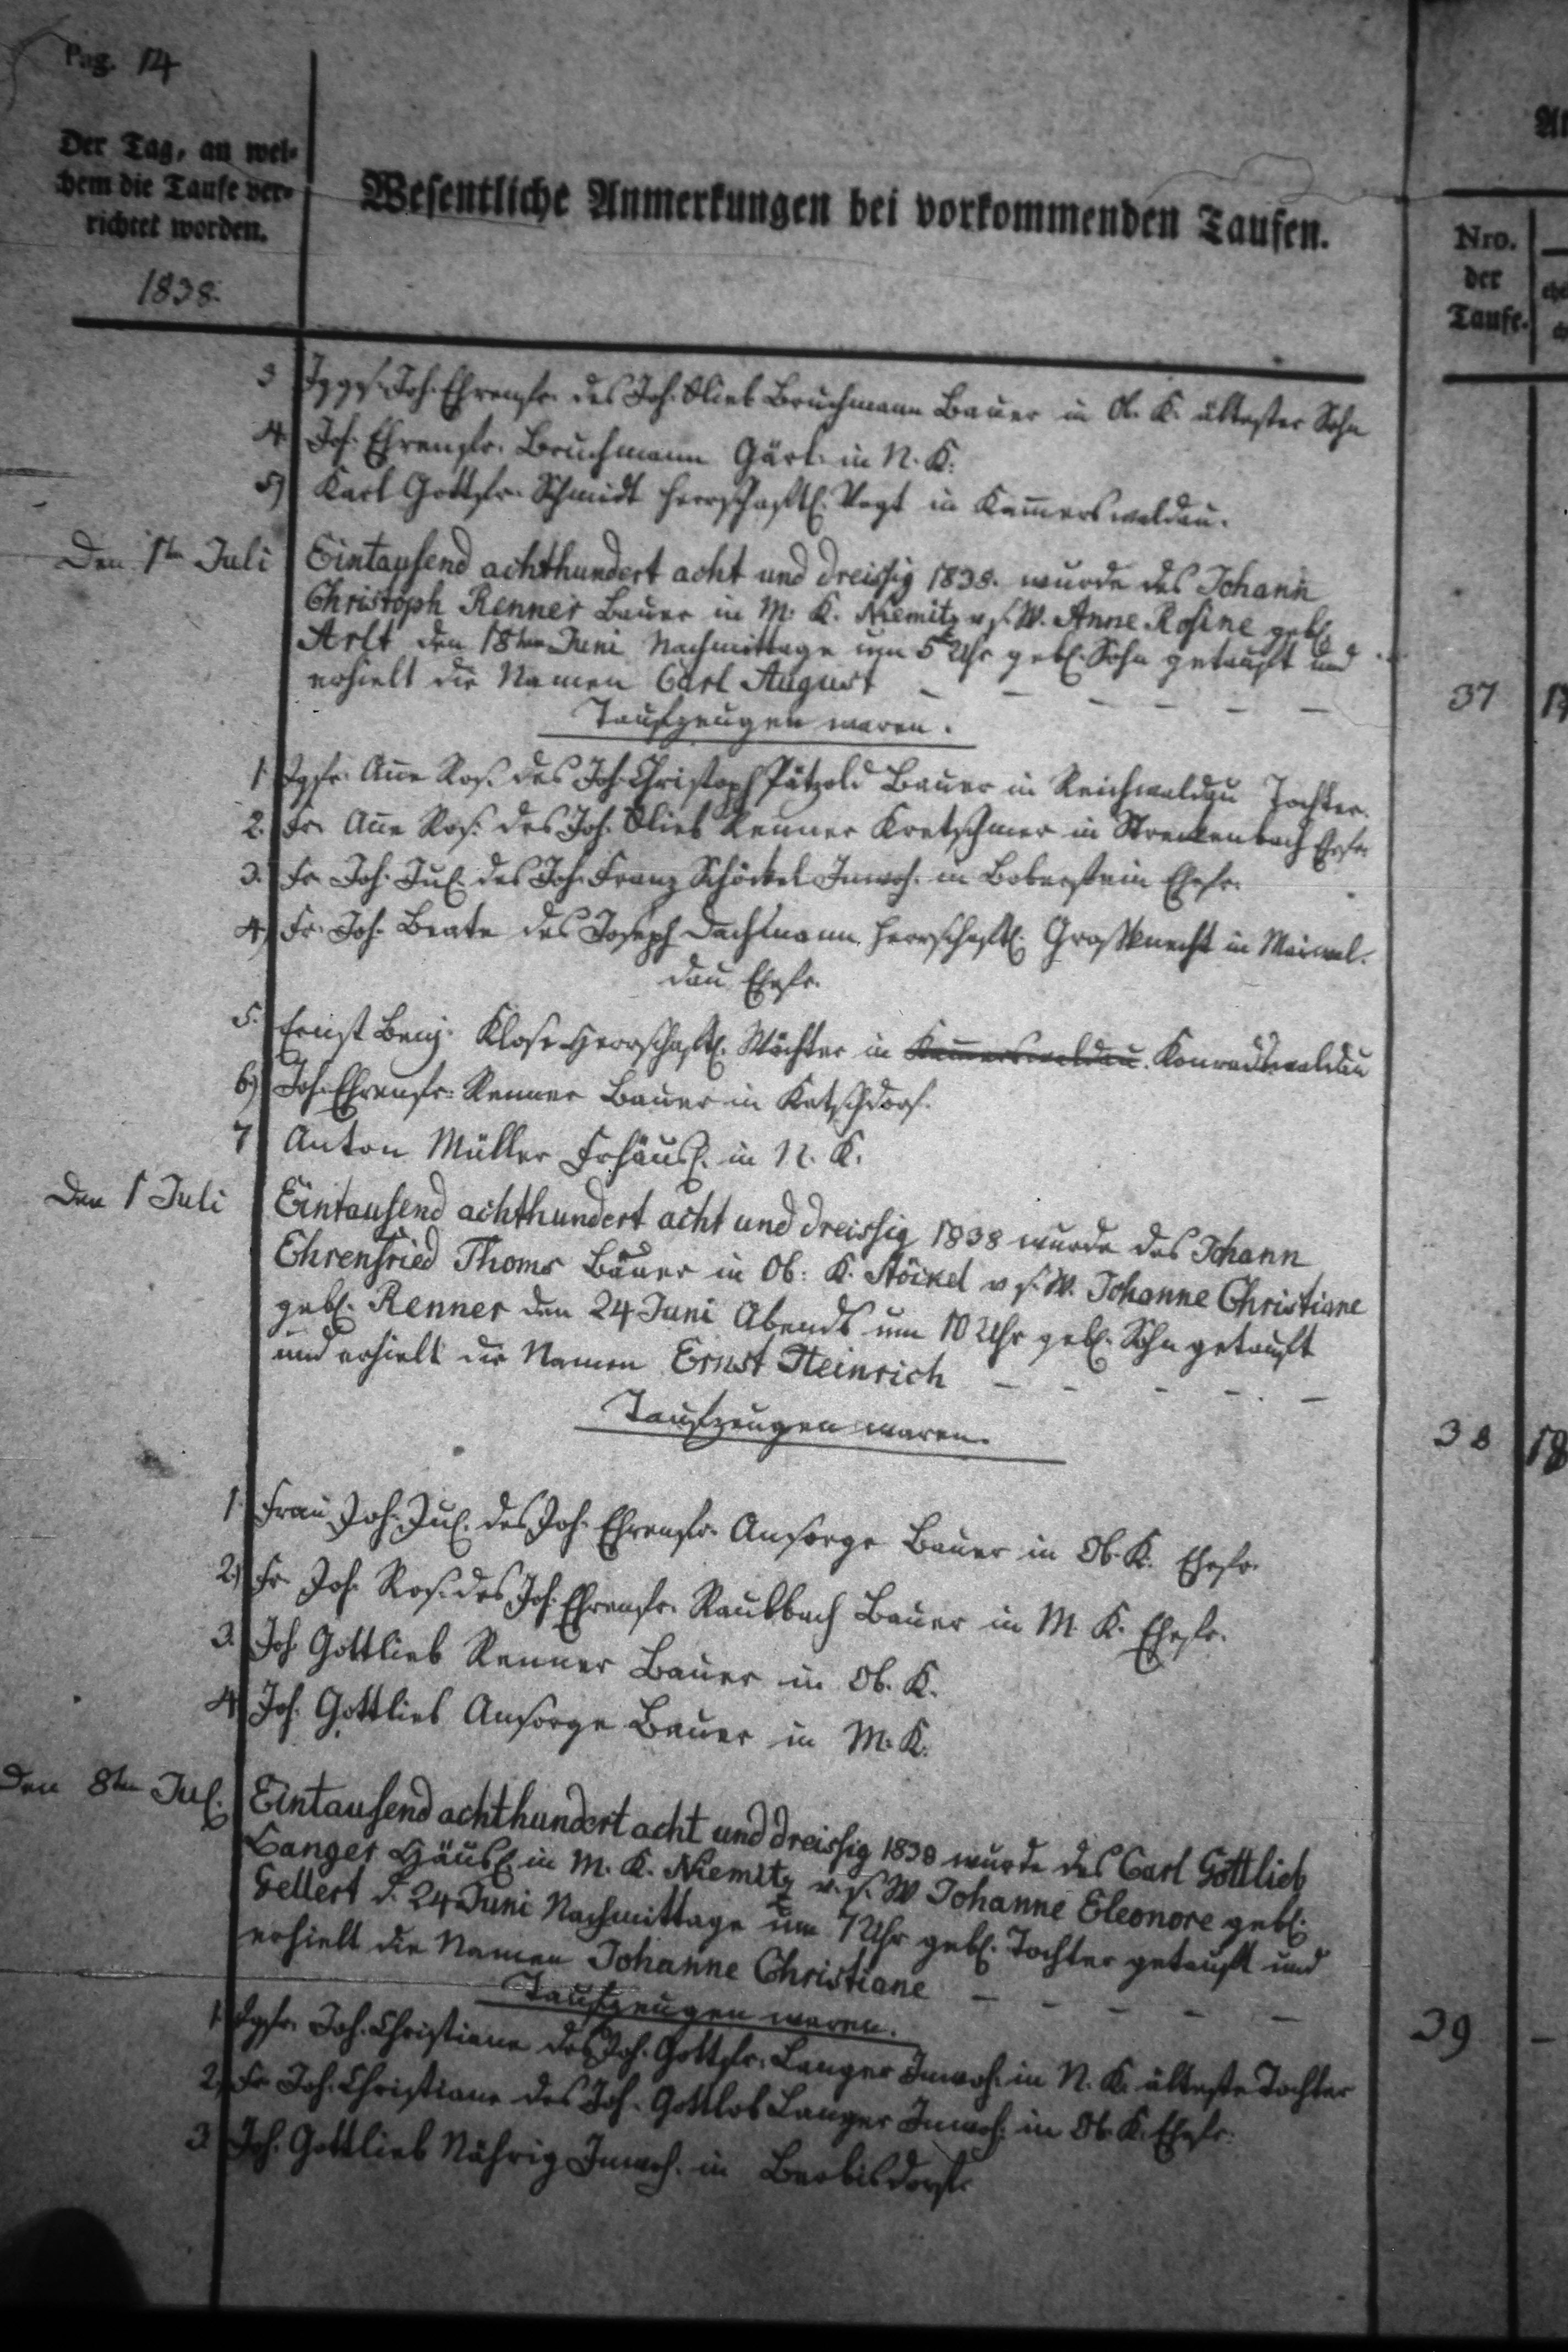 Pag. 14
Der Tag, an wel-
chem die Taufe ver-
richtet worden.
1838.
Wesentliche Anmerkungen bei vorkommenden Taufen.
Nro.
der
Taufe.
3 Jggs. Joh. Ehrenfr. des Joh. Glieb Bruchmann Bauer in Ob. K. ältester Sohn
4. Joh. Ehrenfr. Bruchmann Gärt. in N. K.
5) Karl Gottfr. Schmidt herrschaftl. Vogt in Kam̅erswaldau.
Den 1ten Juli Eintausend achthundert acht und dreissig 1838. wurde des Johann
Christoph Renner Bauer in M. K. Niemitz v. s. W. Anne Rosine geb.
Arlt den 18ten Juni Nachmittage um 5 Uhr geb. Sohn getauft und
erhielt die Namen Carl August - - - - - -
37
Taufzeugen waren.
1. Jgfr. An̅e Ros. des Joh. Christoph Pätzold Bauer in Reichwaldau Tochter.
2. Fr. An̅e Ros. des Joh. Glieb Renner Kretschmer in Streckenbach Ehefr.
3. Fr. Joh. Jul. des Joh. Franz Schöckel Inwoh. in Boberstein Ehefr.
4) Fr. Joh. Beate des Joseph Dachmann herrschaftl. Großknecht in Maiwal-
dau Ehefr.
5. Ernst Benj. Klose herrschaftl. Wächter in Kam̅erswaldau. Konradswaldau
6) Joh. Ehrenfr. Renner Bauer in Ketschdorf.
7 Anton Müller Frhäusl. in N. K.
Den 1 Juli Eintausend achthundert acht und dreissig 1838 wurde des Johann
Ehrenfried Thoms Bauer in Ob. K. Stöckel v. s. W. Johanne Christiane
geb. Renner den 24 Juni Abends um 10 Uhr geb. Sohn getauft
und erhielt die Namen Ernst Heinrich - - - - -
38
Taufzeugen waren.
1. Frau Joh. Jul. des Joh. Ehrenfr. Ansorge Bauer in Ob. K. Ehefr.
2.) Fr. Joh. Ros. des Joh. Ehrenfr. Raubbach Bauer in M. K. Ehefr.
3. Joh. Gottlieb Renner Bauer in Ob. K.
4. Joh. Gottlieb Ansorge Bauer in M. K.
Den 8ten Jul. Eintausend achthundert acht und dreissig 1838 wurde des Carl Gottlieb
Langer Häusl. in M. K. Niemitz v. s. W Johanne Eleonore geb.
Gellert d. 24 Juni Nachmittage um 7 Uhr geb. Tochter getauft und
erhielt die Namen Johanne Christiane - - - - -
39
Taufzeugen waren.
1. Jgfr. Joh. Christiane des Joh. Gottfr. Langer Inwoh. in N. K. älteste Tochter
2. Fr. Joh. Christiane des Joh. Gottlob Langer Inwoh. in Ob. K. Ehefr.
3. Joh. Gottlieb Nährig Inwoh. in Berbisdorf.